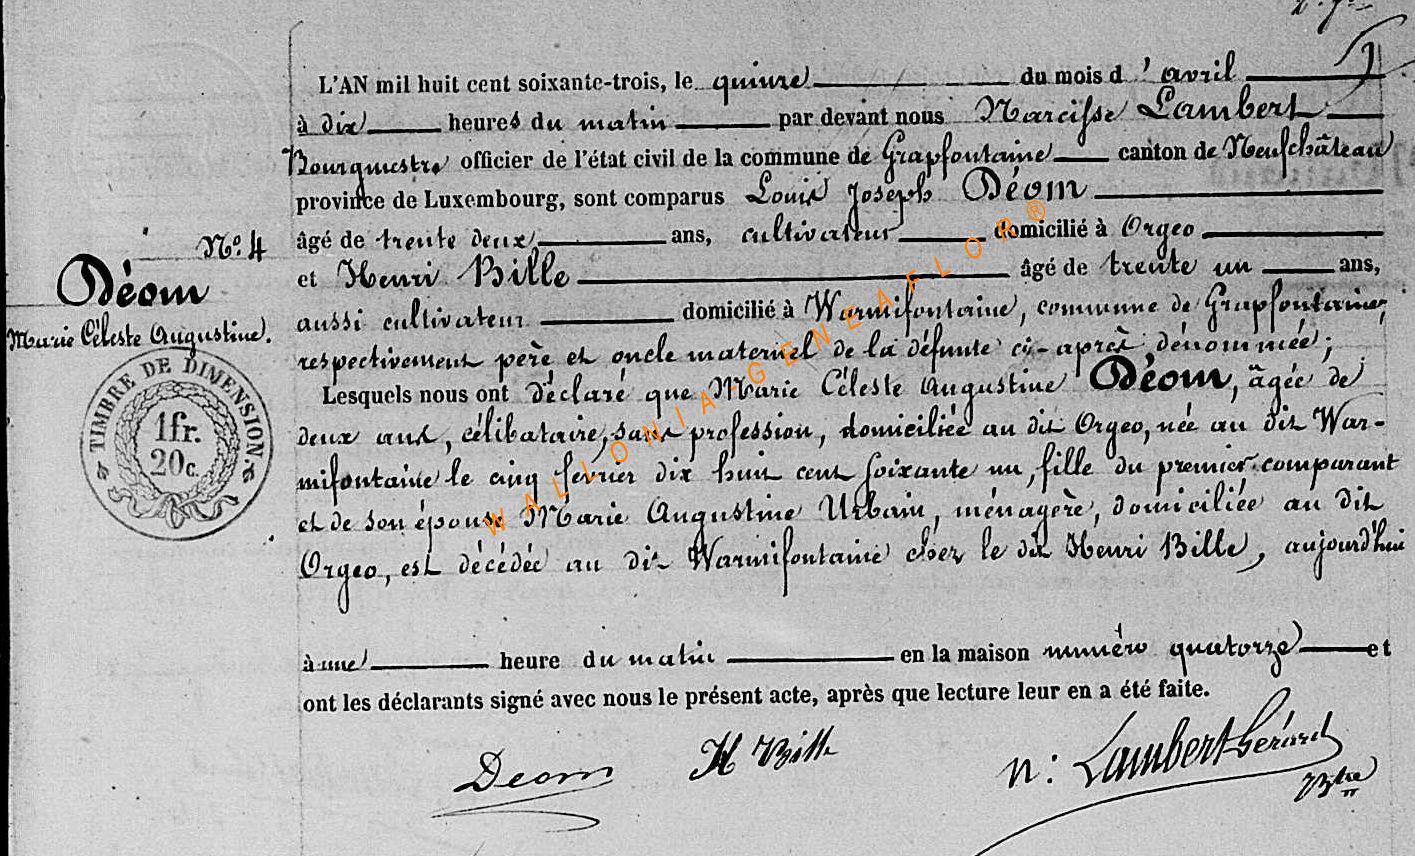 L'AN mil huit cent soixante-trois, le quinze du mois d'avril
à dix heures du matin par devant nous Narcisse Lambert
Bourgmestre officier de l'état civil de la commune de Grapfontaine canton de Neufchâteau
province de Luxembourg, sont comparus Louis Joseph Déom
N° 4
âgé de trente deux ans, cultivateur domicilié à Orgeo
Déom
et Henri Bille âgé de trente un ans,
Marie Céleste Augustine.
aussi cultivateur domicilié à Warmifontaine, commune de Grapfontaine,
respectivement père et oncle maternel de la défunte ci-après dénommée;
TIMBRE DE DIMENSION.
1fr.
20c.
Lesquels nous ont déclaré que Marie Céleste Augustine Déom, âgée de
deux ans, célibataire, sans profession, domiciliée au dit Orgeo, née au dit War-
mifontaine le cinq février dix huit cent soixante un, fille du premier comparant
et de son épouse Marie Augustine Urbain, ménagère, domiciliée au dit
Orgeo, est décédée au dit Warmifontaine chez le dit Henri Bille, aujourd'hui
à une heure du matin en la maison numéro quatorze et
ont les déclarants signé avec nous le présent acte, après que lecture leur en a été faite.
Deom
H Bille
n: Lambert Gérard
Btre
WALLONIA-GENEAFLOR®